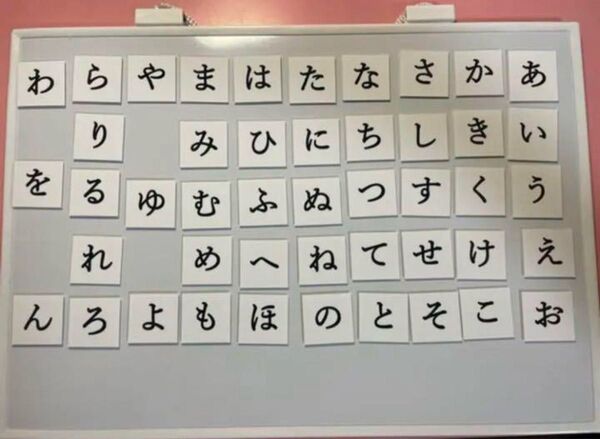 あいうえお
かきくけこ
さしすせそ
なちつてと
たにぬねの
はひふへほ
まみむめも
やゆよ
らりるれろ
わをん